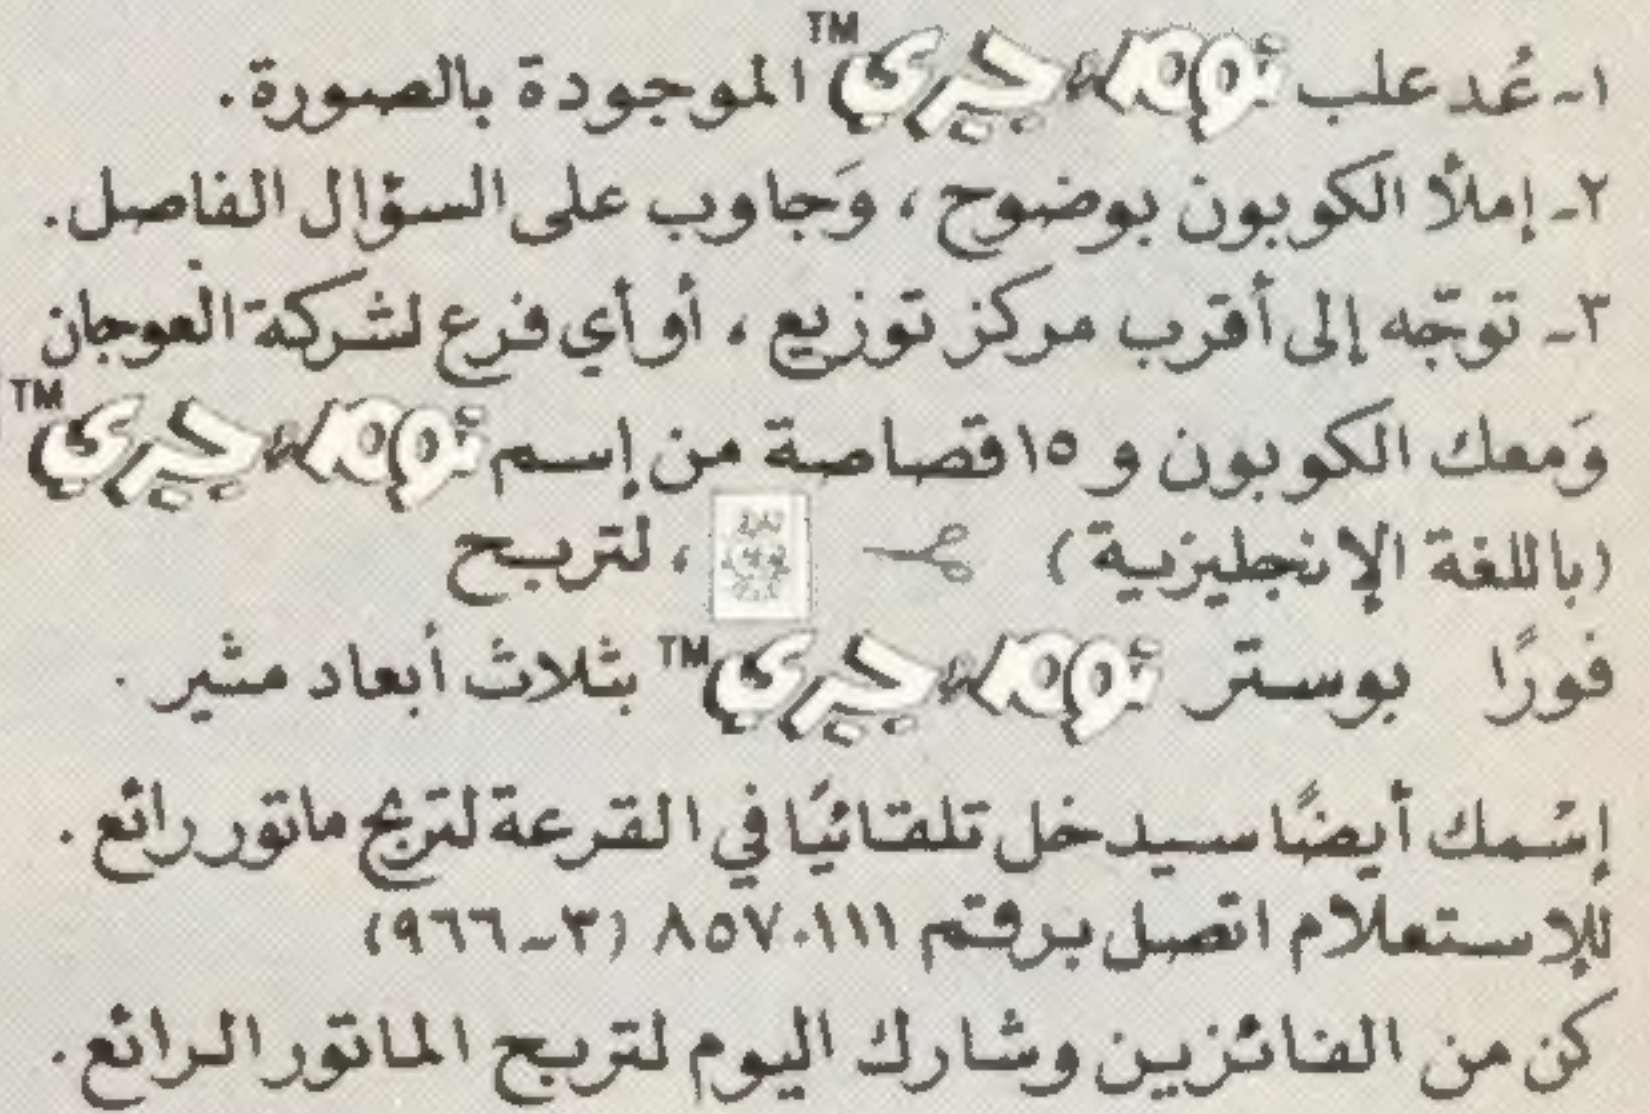 ١- عُد علب توم & جيري™ الموجودة بالصورة.
٢- إملأ الكوبون بوضوح ، وَجاوب على السؤال الفاصل.
٣- توجّه إلى أقرب مركز توزيع ، أو أي فرع لشركة العوجان
وَمعك الكوبون و ١٥ قصاصة من إسم توم & جيري™
(باللغة الإنجليزية) ، لتربح
فورًا بوستر توم & جيري™ بثلاث أبعاد مثير .
إسمك أيضًا سيدخل تلقائيًا في القرعة لتربح ماتور رائع .
للإستعلام اتصل برقم ٨٥٧٠١١١ (٣-٩٦٦)
كن من الفائزين وشارك اليوم لتربح الماتور الرائع .